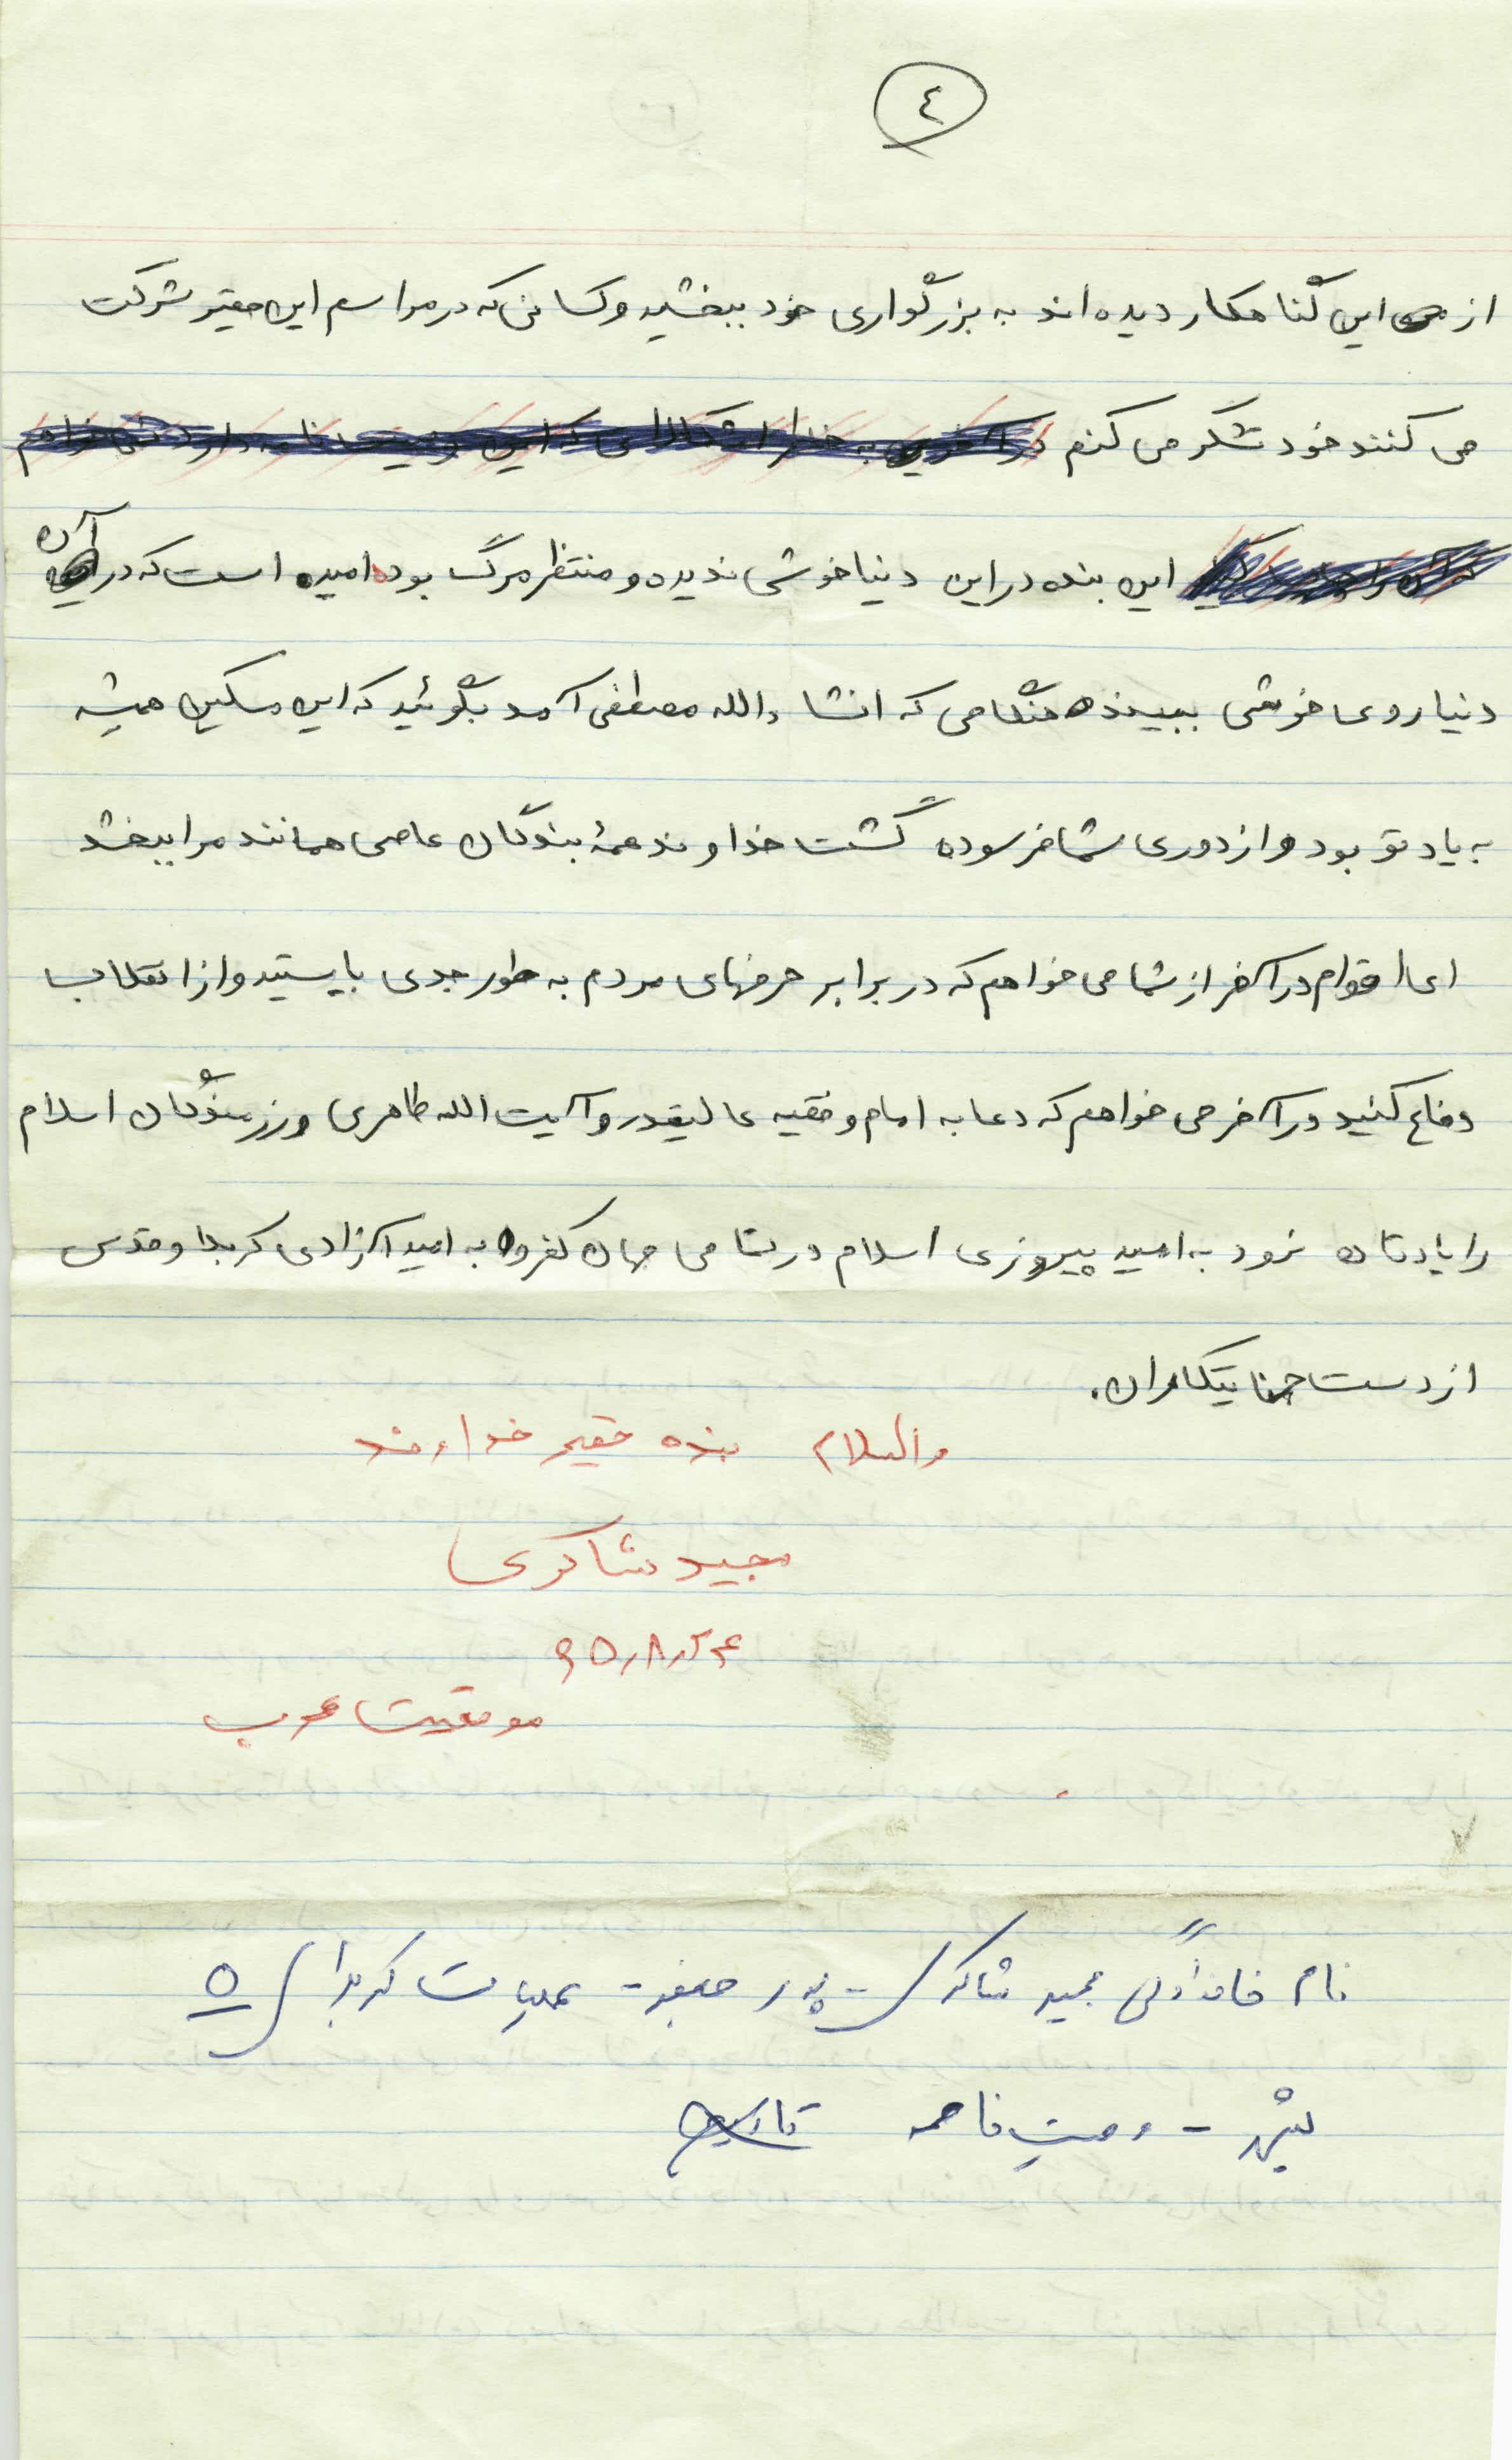 ٤
از این گناهکار دیده اند به بزرگواری خود ببخشید و کسانی که در مراسم این حقیر شرکت
می کنند خود تشکر می کنم
این بنده در این دنیا خوشی ندیده و منتظر مرگ بوده امید است که در آن
دنیا روی خوشی ببیند هنگامی که انشاءالله مصطفی آمد بگوئید که این مسکین همیشه
به یاد تو بود و از دوری شما فرسوده گشت خداوند همهٔ بندگان عاصی همانند مرا ببخشد
ای اقوام در آخر از شما می خواهم که در برابر حرفهای مردم به طور جدی بایستید و از انقلاب
دفاع کنید در آخر می خواهم که دعا به امام و فقیه عالیقدر و آیت الله طاهری و رزمندگان اسلام
را یادتان نرود به امید پیروزی اسلام در تمامی جهان کفر و به امید آزادی کربلا و قدس
از دست جنایتکاران.
والسلام بنده حقیر خداوند
مجید شاکری
۶۵/۸/۲۴
موقعیت عرب
نام خانوادگی مجید شاکری - پدر جعفر - عملیات کربلای ۵
وصیت نامه